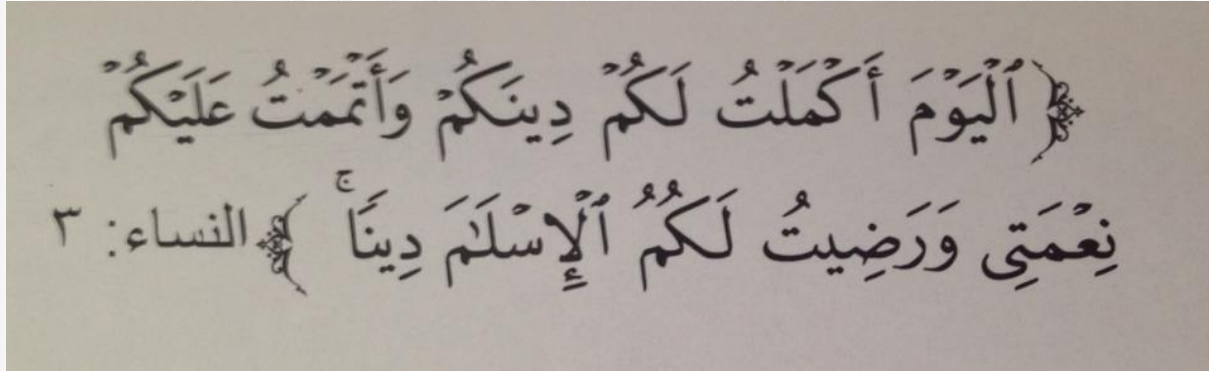 ﴿ ٱلْيَوْمَ أَكْمَلْتُ لَكُمْ دِينَكُمْ وَأَتْمَمْتُ عَلَيْكُمْ
نِعْمَتِى وَرَضِيتُ لَكُمُ ٱلْإِسْلَـٰمَ دِينًاۚ ﴾ النساء: ٣